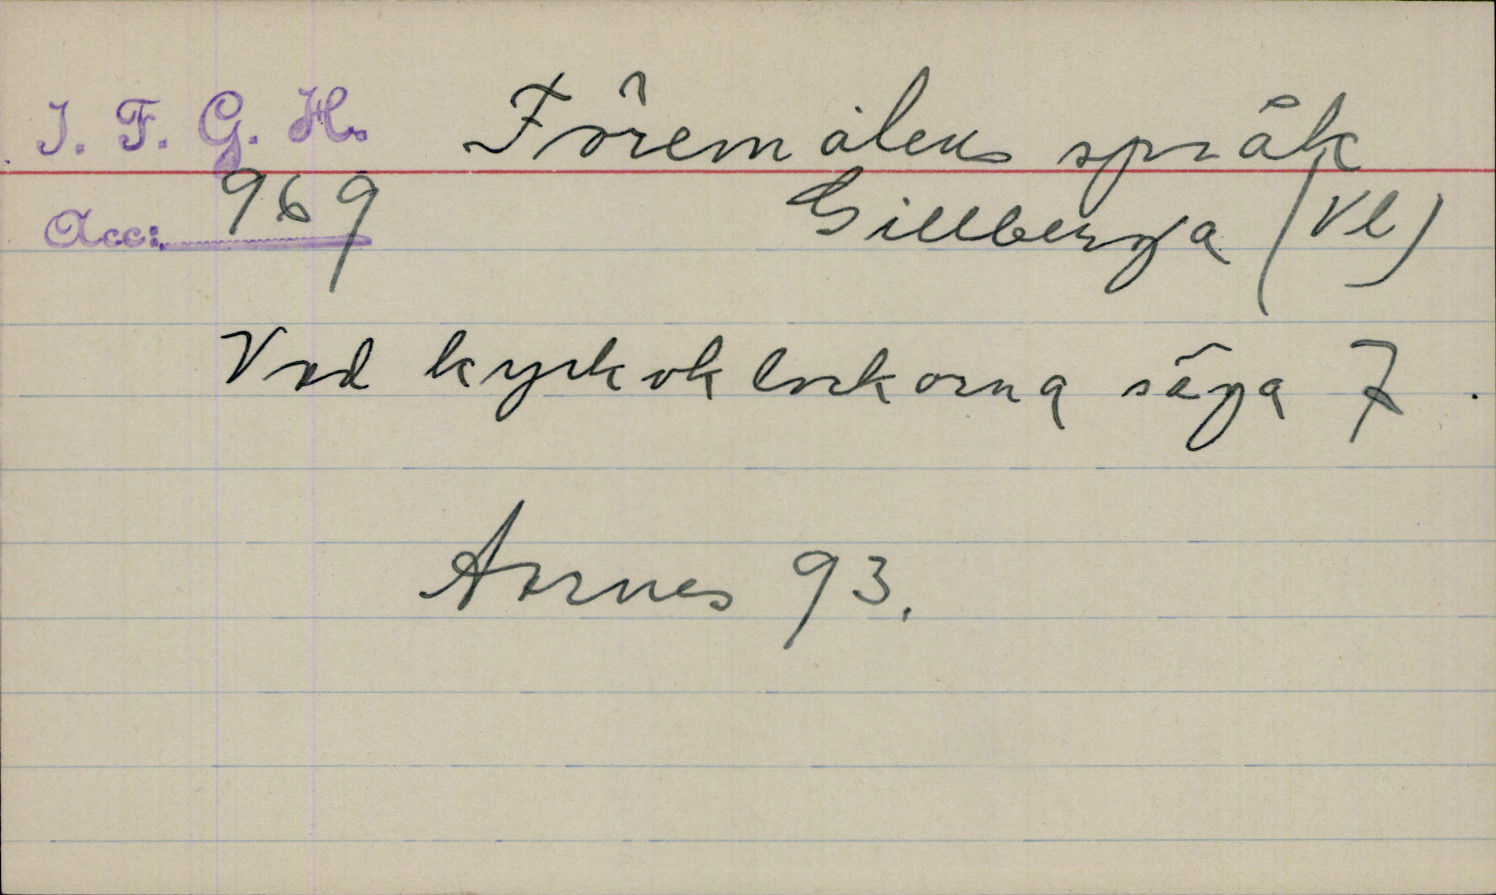 I. F. G. H. Föremålens språk
Acc: 969 Gillberga (Vl)
Vad kyrkoklockorna säga 7.
Aarnes 93.